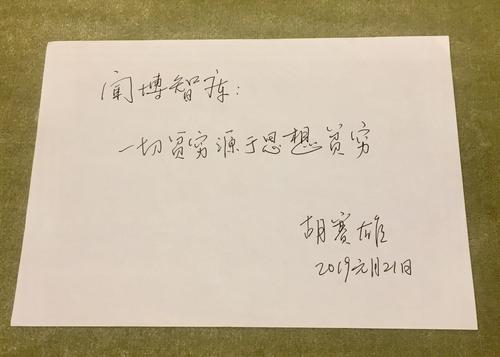 闻博智库：
一切贫穷源于思想贫穷
胡赛雄
2019元月21日